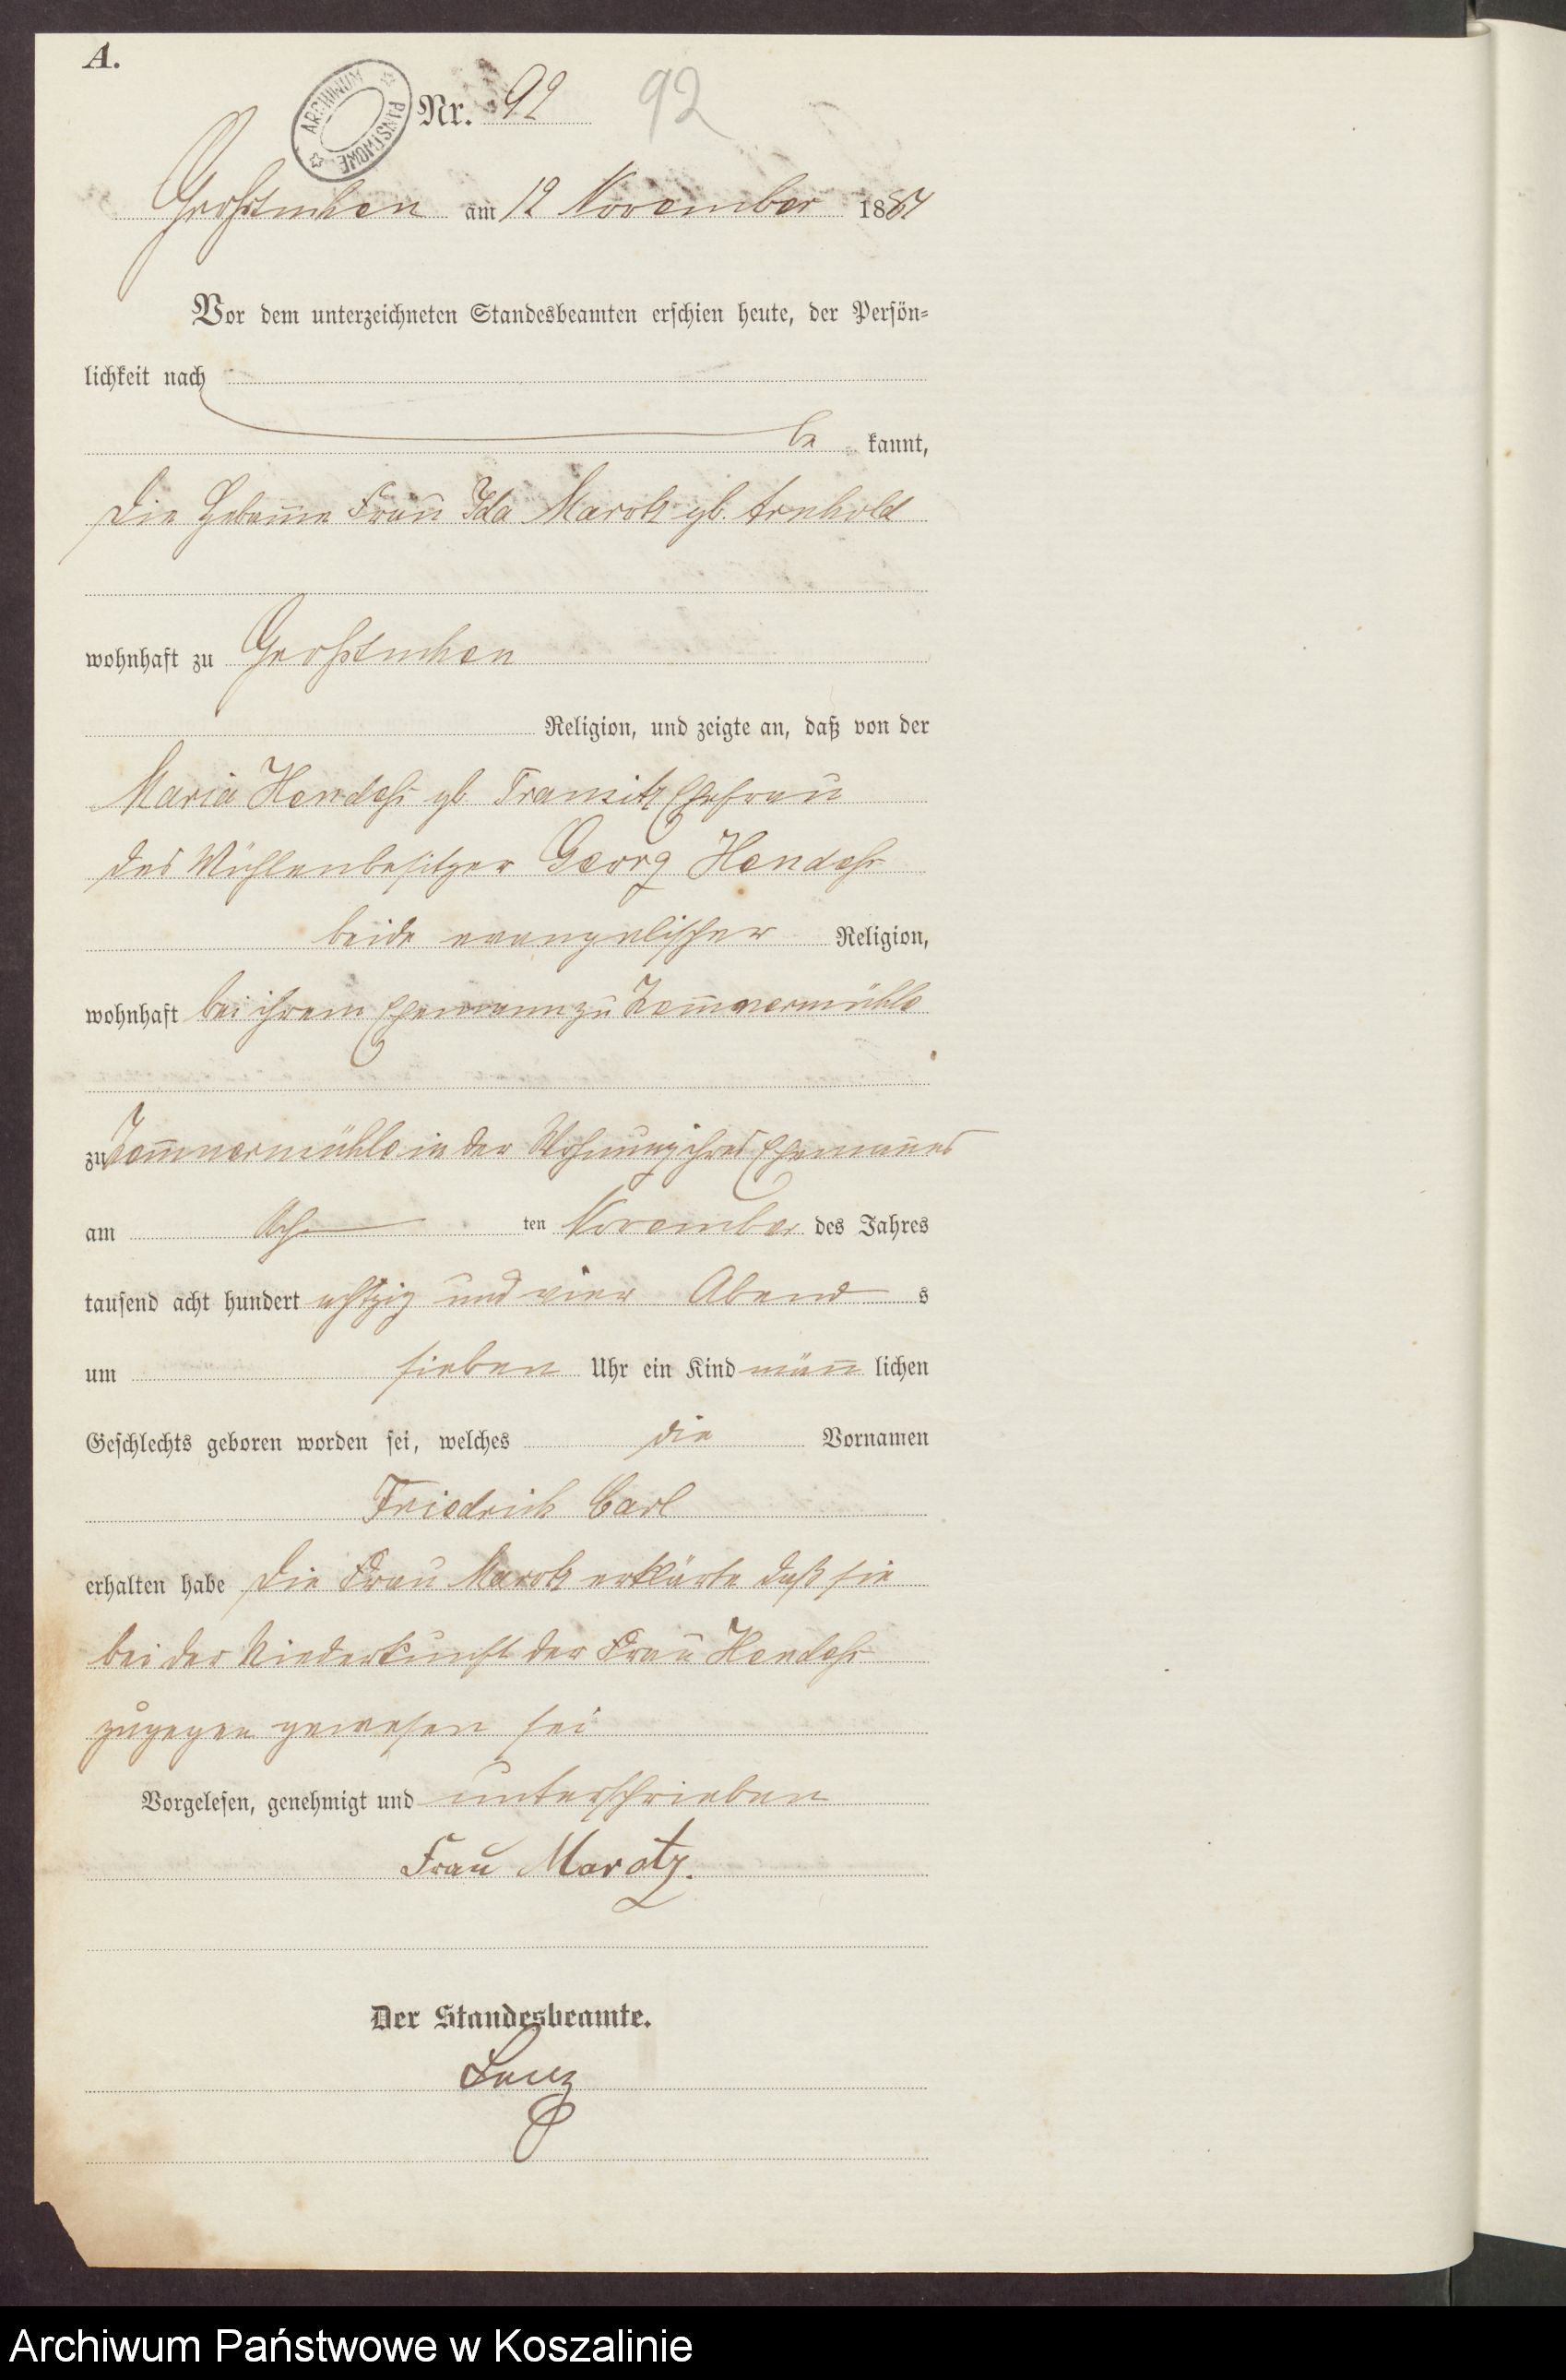 A.
ARCHIWUM PAŃSTWOWE
Nr. 92 92
Großtuchen am 12 November 1884
Vor dem unterzeichneten Standesbeamten erschien heute, der Persön-
lichkeit nach
be kannt,
die Hebamme Frau Ida Marotz gb. Arnhold
wohnhaft zu Großtuchen
Religion, und zeigte an, daß von der
Maria Hendeß gb. Tramitz Ehefrau
des Mühlenbesitzer Georg Hendeß
beide evangelischer Religion,
wohnhaft bei ihrem Ehemann zu
zu in der Wohnung ihres Ehemannes
am Ach ten November des Jahres
tausend acht hundert achtzig und vier Abend s
um sieben Uhr ein Kind männ lichen
Geschlechts geboren worden sei, welches die Vornamen
Friedrich Carl
erhalten habe Die Frau Marotz erklärte daß sie
bei der Niederkunft der Frau Hendeß
zugegen gewesen sei
Vorgelesen, genehmigt und unterschrieben
Frau Marotz.
Der Standesbeamte.
Archiwum Państwowe w Koszalinie